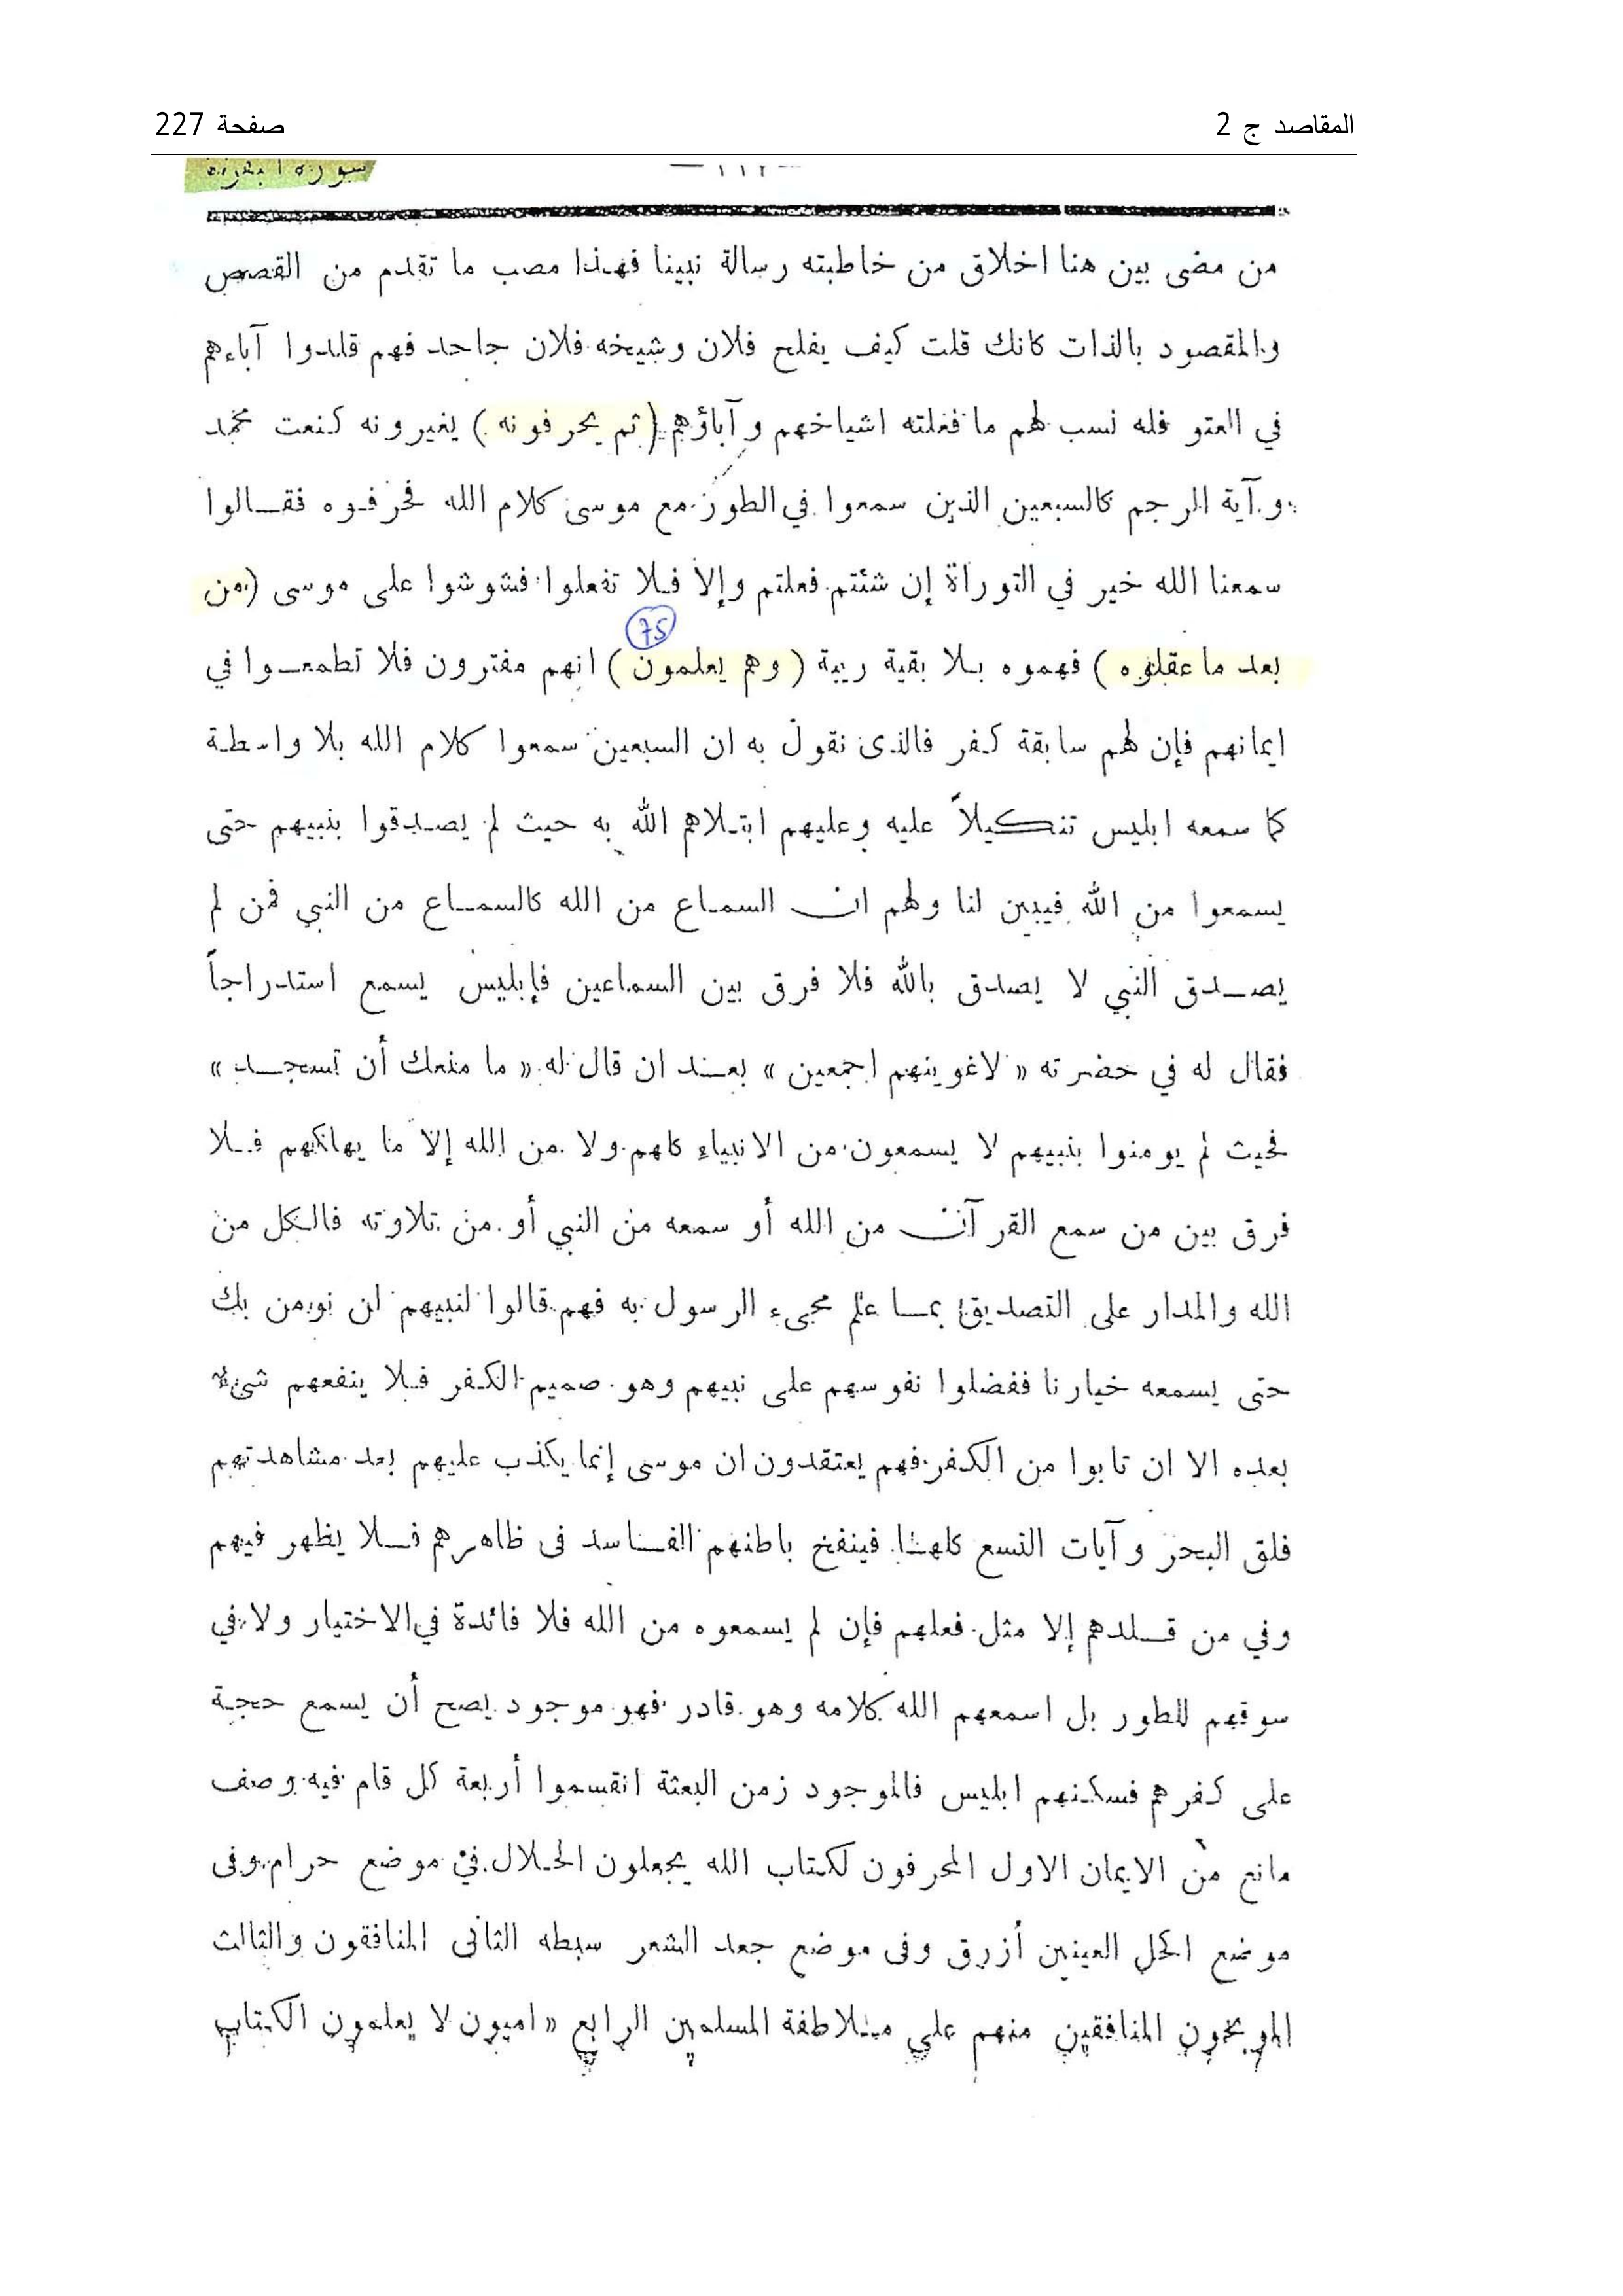 المقاصد ج 2
صفحة 227
— ١١٢ —
سورة البقرة
من مضى بين هنا اخلاق من خاطبته رسالة نبينا فهذا مصب ما تقدم من القصص
والمقصود بالذات كانك قلت كيف يفلح فلان وشيخه فلان جاحد فهم قلدوا آباءهم
في العتو فله نسب لهم ما فعلته اشياخهم وآباؤهم (ثم يحرفونه) يغيرونه كنعت محمد
وآية الرجم كالسبعين الذين سمعوا في الطور مع موسى كلام الله فحرفوه فقالوا
سمعنا الله خير في التوراة إن شئتم فعلتم وإلا فلا تفعلوا فشوشوا على موسى (من
75
بعد ما عقلوه) فهموه بلا بقية ريبة (وهم يعلمون) انهم مفترون فلا تطمعوا في
ايمانهم فإن لهم سابقة كفر فالذى نقول به ان السبعين سمعوا كلام الله بلا واسطة
كما سمعه ابليس تنكيلاً عليه وعليهم ابتلاهم الله به حيث لم يصدقوا بنبيهم حتى
يسمعوا من الله فيبين لنا ولهم ان السماع من الله كالسماع من النبي فمن لم
يصدق النبي لا يصدق بالله فلا فرق بين السماعين فإبليس يسمع استدراجاً
فقال له في حضرته « لاغوينهم اجمعين » بعد ان قال له « ما منعك أن تسجد »
فحيث لم يومنوا بنبيهم لا يسمعون من الانبياء كلهم ولا من الله إلا ما يهلكهم فلا
فرق بين من سمع القرآن من الله أو سمعه من النبي أو من تلاوته فالكل من
الله والمدار على التصديق بما علم مجىء الرسول به فهم قالوا لنبيهم لن نومن بك
حتى يسمعه خيارنا ففضلوا نفوسهم على نبيهم وهو صميم الكفر فلا ينفعهم شيء
بعده الا ان تابوا من الكفر فهم يعتقدون ان موسى إنما يكذب عليهم بعد مشاهدتهم
فلق البحر وآيات التسع كلها فينفخ باطنهم الفاسد فى ظاهرهم فلا يظهر فيهم
وفي من قلدهم إلا مثل فعلهم فإن لم يسمعوه من الله فلا فائدة في الاختيار ولا في
سوقهم للطور بل اسمعهم الله كلامه وهو قادر فهو موجود يصح أن يسمع حجة
على كفرهم فسكنهم ابليس فالموجود زمن البعثة انقسموا أربعة كل قام فيه وصف
مانع من الايمان الاول المحرفون لكتاب الله يجعلون الحلال في موضع حرام وفى
موضع اكحل العينين أزرق وفى موضع جعد الشعر سبطه الثانى المنافقون والثالث
الموبخون المنافقين منهم على ملاطفة المسلمين الرابع « اميون لا يعلمون الكتاب